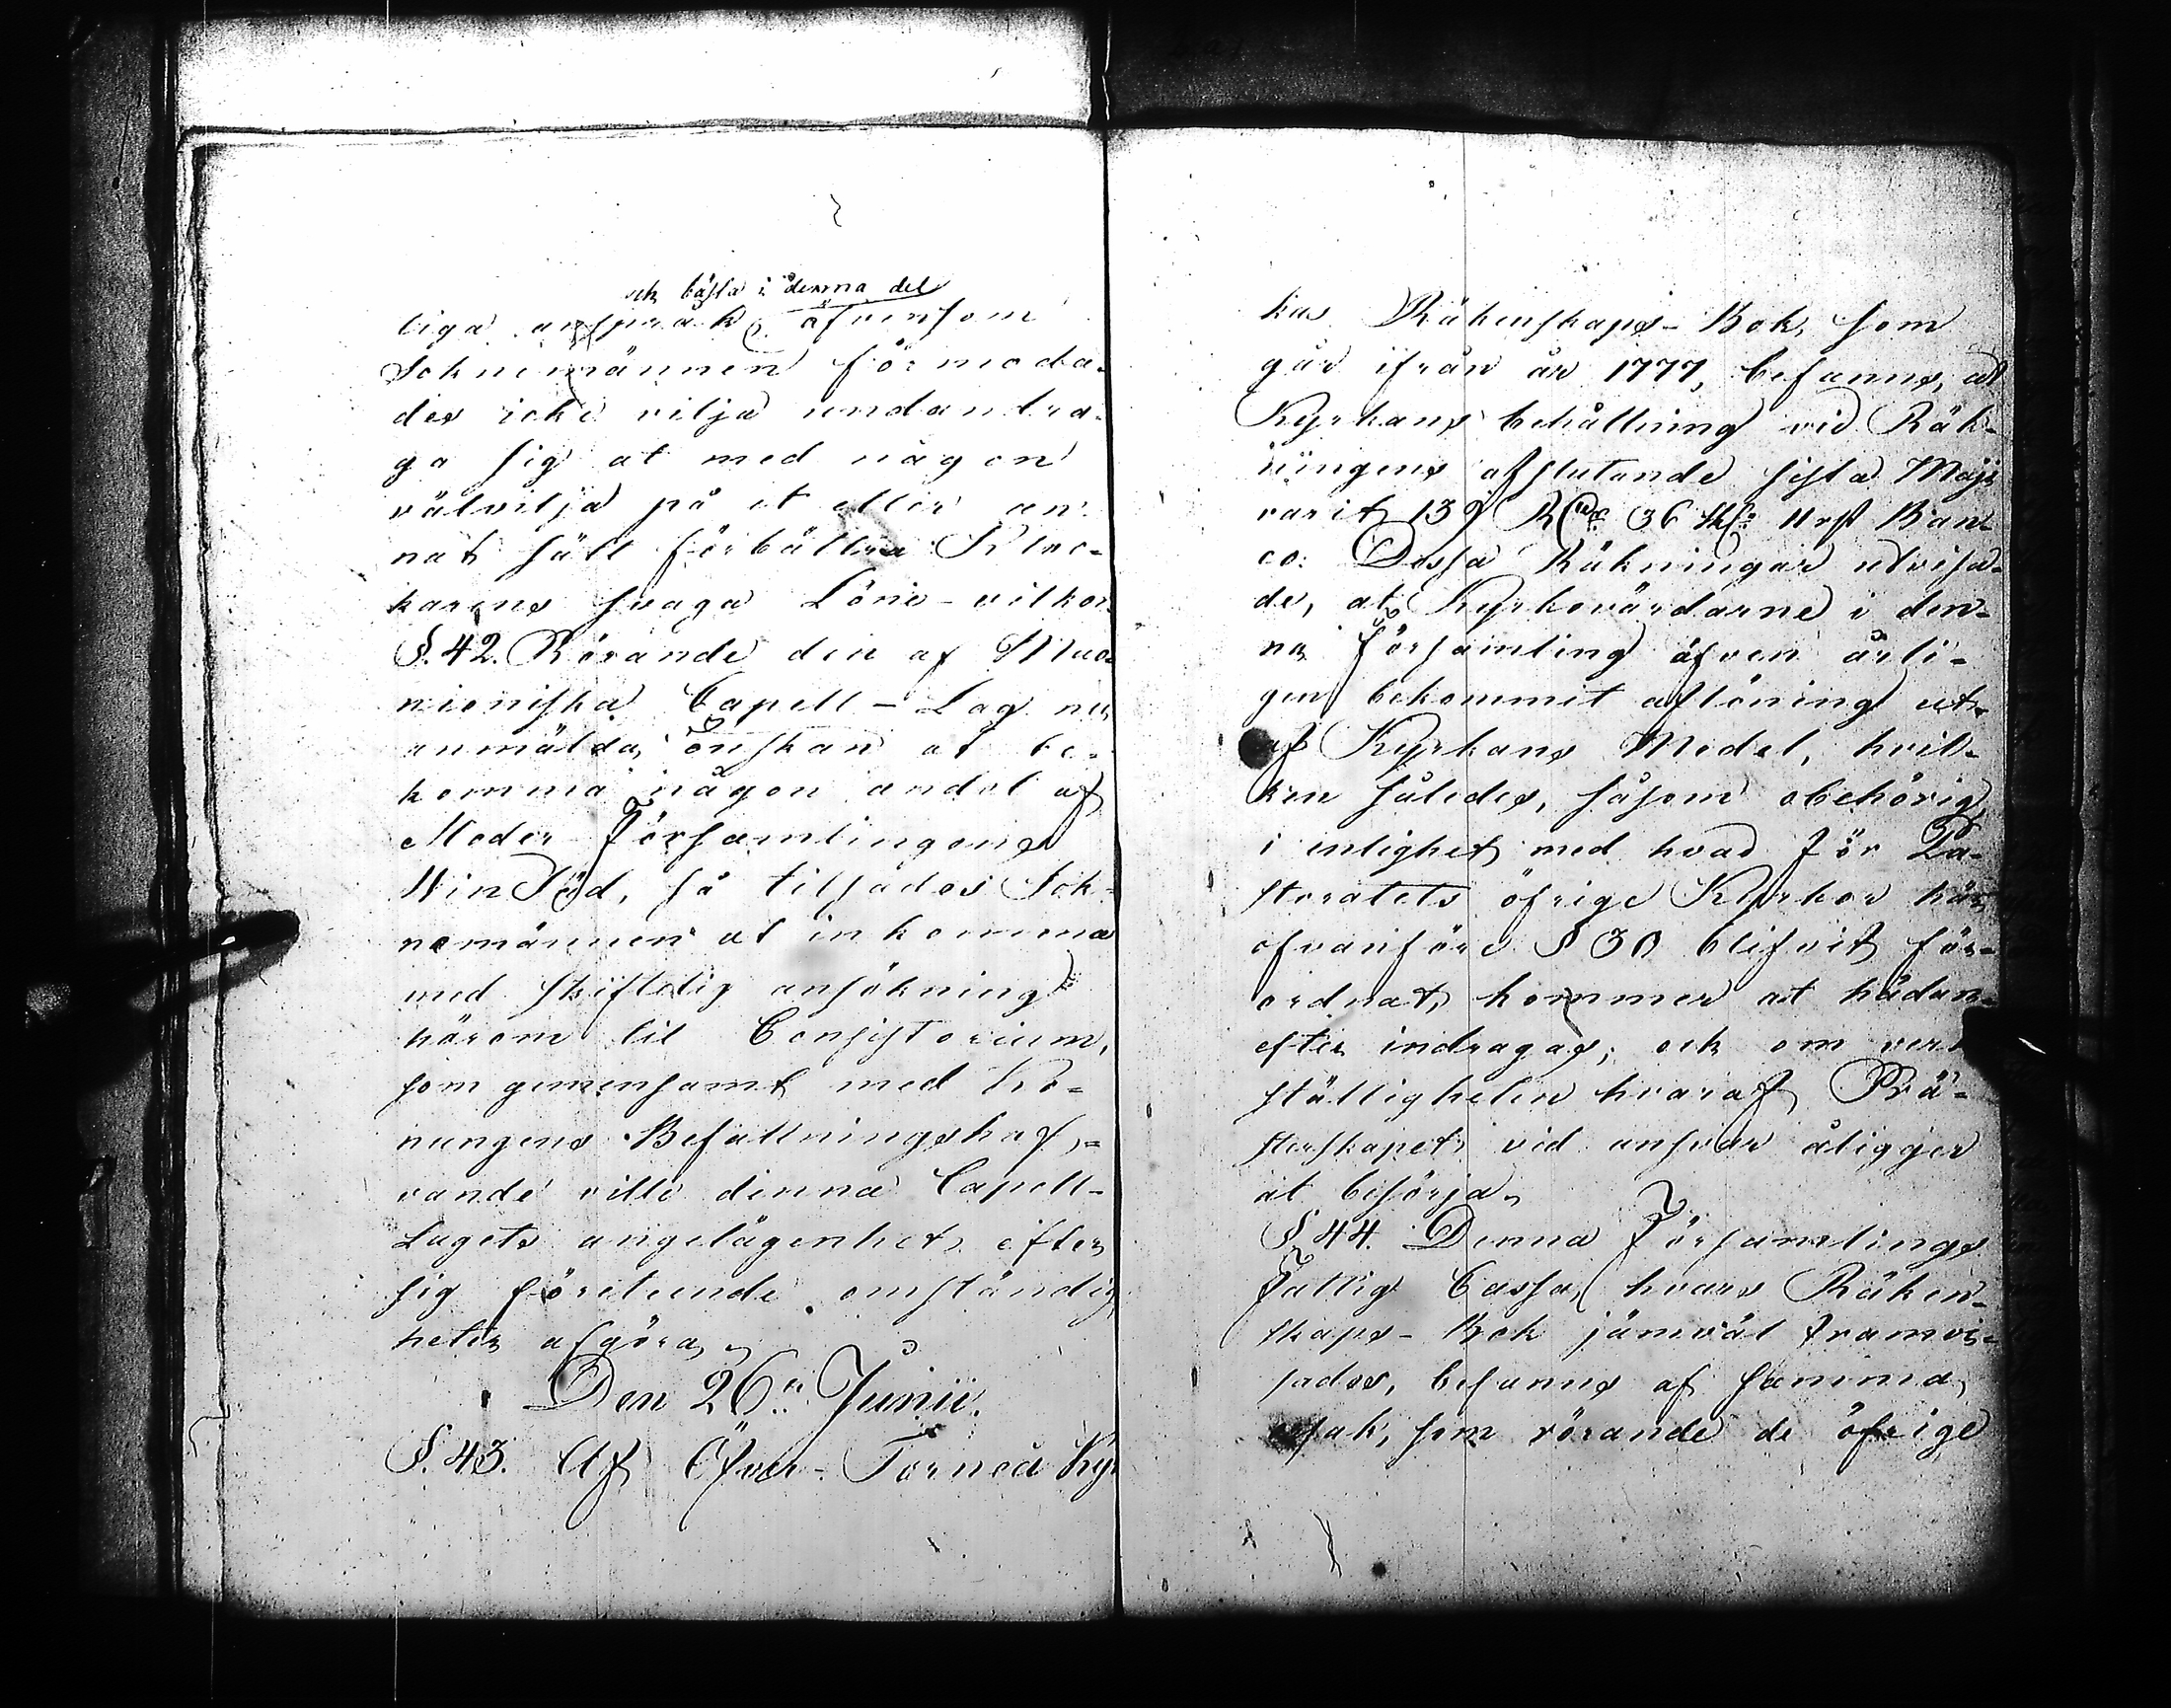 och bästa i denna del
liga anspråk, äfvensom
Soknemännen förmoda-
des icke vilja undandra-
ga sig at med någon
välvilja på et eller an-
nat sätt förbättra Kloc-
karens svaga Löne-vilkor.
§. 42. Rörande den af Muo-
nioniska Capell-Lag nu
anmälda önskan at be-
komma någon andel af
Moder Församlingens
Win Säd, så tilsades Sok-
nemännen at inkomma
med skriftelig ansökning
härom til Consistorium,
som gemensamt med Ko-
nungens Befallningshaf-
vande ville denna Capell-
Lagets angelägenhet efter
sig företeende omständig-
heter afgöra.
Den 26:te Junii.
§. 43. Af Öfver-Torneå Kyr-
kas Räkenskaps-Bok, som
går ifrån år 1777, befanns, at
Kyrkans behållning vid Räk-
ningens afslutande sista Maji
varit 139 R:dr 36 sk: 11 rst Ban-
co: Dessa Räkningar utvisa-
de, at Kyrkovärdarne i den-
na församling äfven årli-
gen bekommit aflöning ut-
af Kyrkans Medel, hvil-
ken således, såsom obehörig,
i enlighet med hvad för Pa-
storatets öfrige Kyrkor här
ofvanföre § 30 blifvit för-
ordnat, kommer at hädan-
efter indragas; och om verk-
ställigheten hvaraf Prä-
sterskapet vid ansvar åligger
at besörja.
§ 44. Denna Församlings
Fattig Cassa, hvars Räken-
skaps-Bok jämväl framvi-
sades, befanns af samma
orsak, som rörande de öfrige